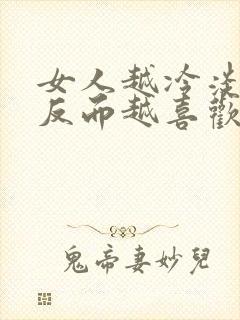 女人越冷淡
反而越喜歡
鬼帝妻妙兒